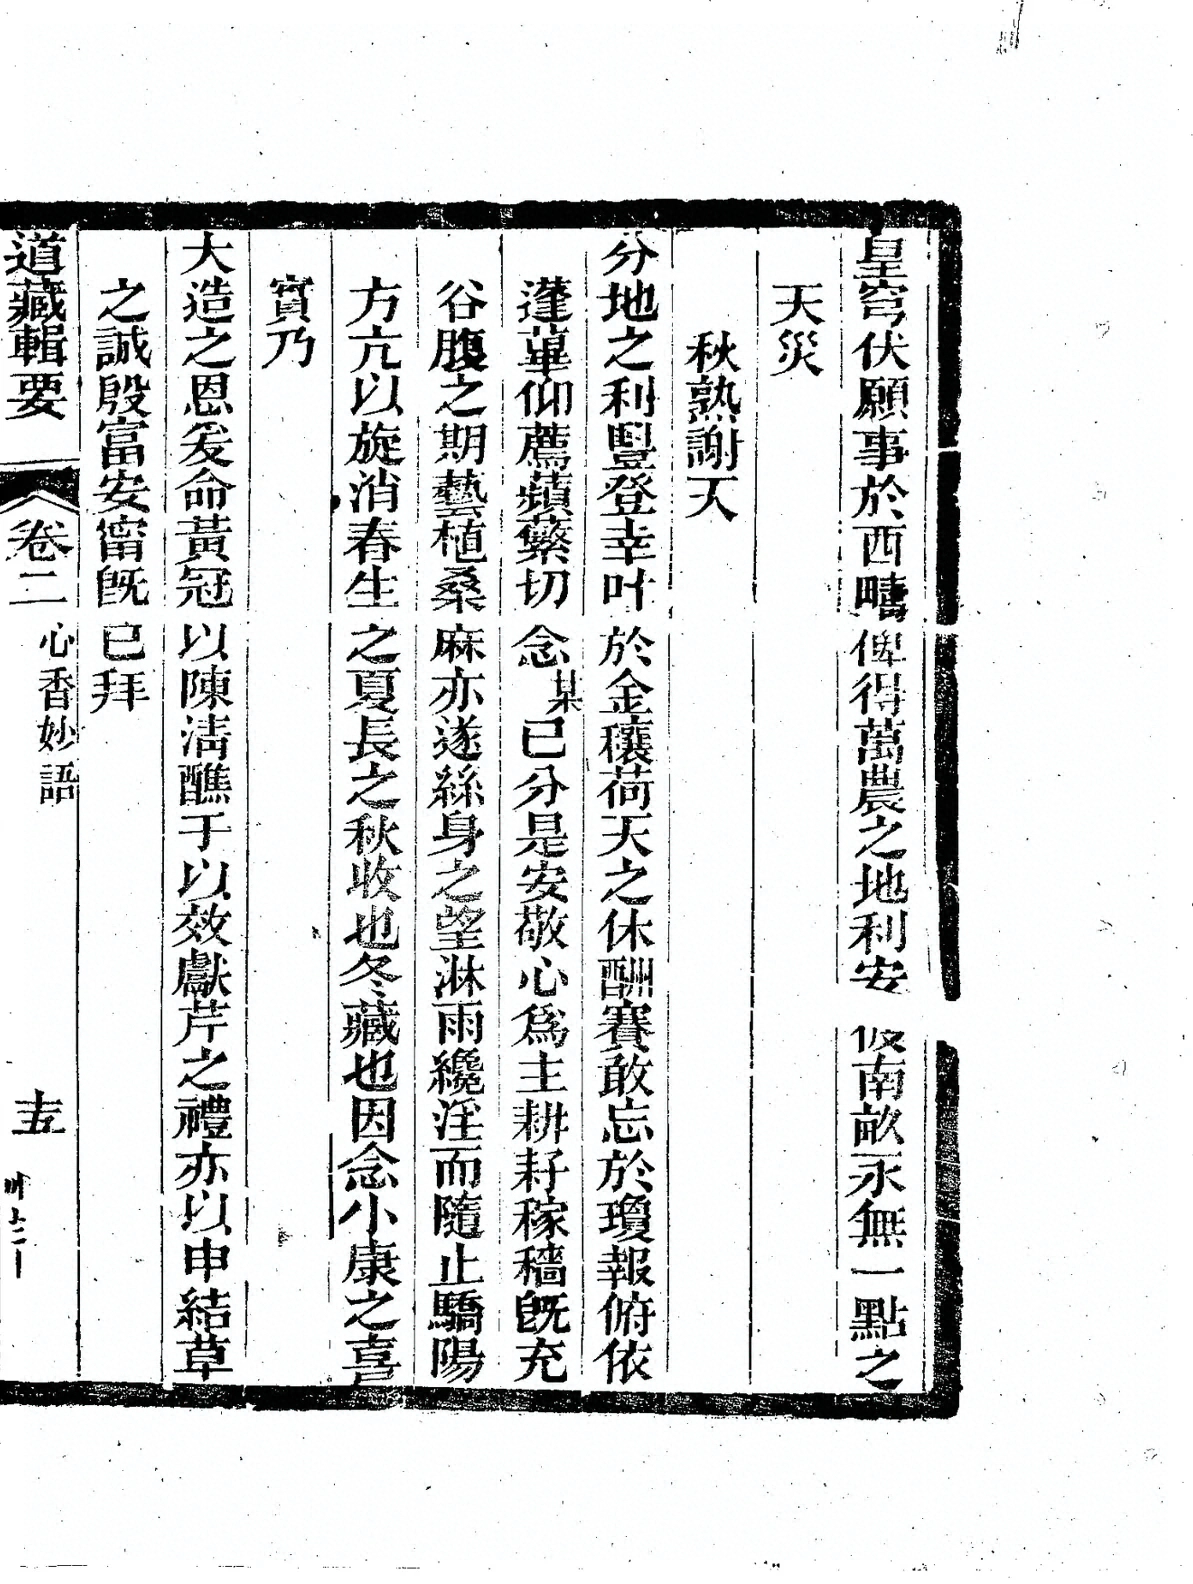 皇穹伏願事於西疇俾得萬農之地利安彼南畝永無一點之
天災
秋熟謝天
分地之利豐登幸叶於金穰荷天之休酬賽敢忘於瓊報俯依
蓬蓽仰薦蘋蘩切念某已分是安敬心爲主耕耔稼穡既充
谷腹之期藝植桑麻亦遂絲身之望淋雨纔淫而隨止驕陽
方亢以旋消春生之夏長之秋收也冬藏也因念小康之喜
實乃
大造之恩爰命黃冠以陳清醮于以效獻芹之禮亦以申結草
之誠殷富安甯既已拜
道藏輯要 卷二 心香妙語 十五